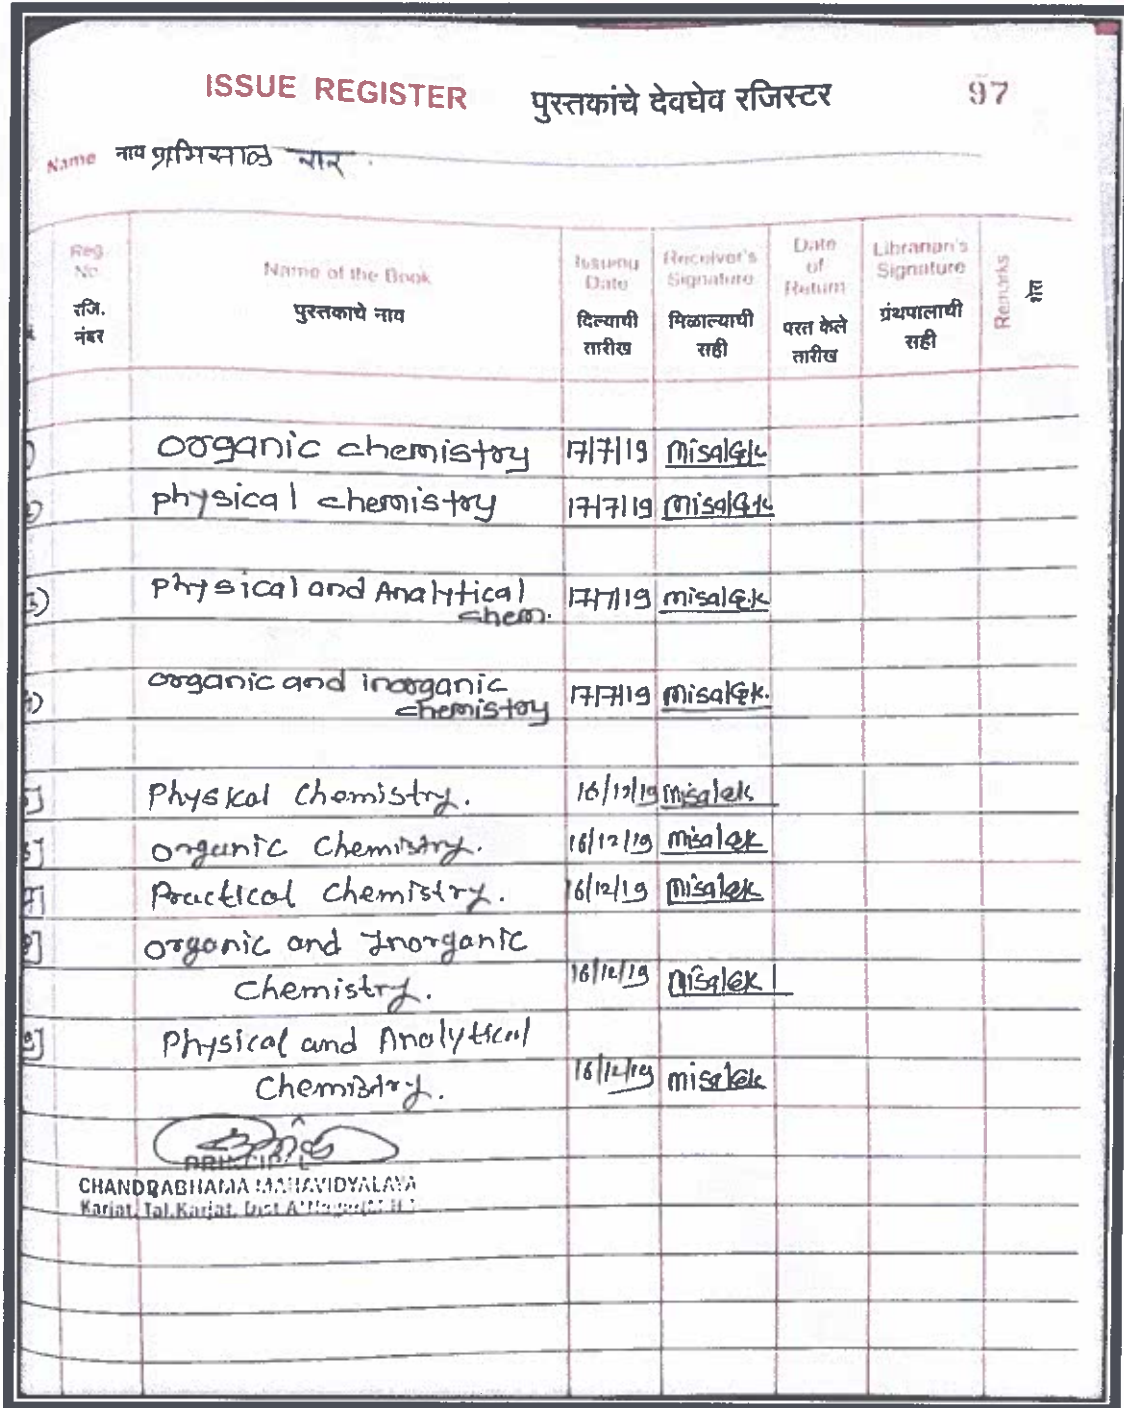 ISSUE REGISTER पुस्तकांचे देवघेव रजिस्टर 97
Name नाव
Reg. No रजि. नंबर
Name of the Book पुस्तकाचे नाव
Issuing Date दिल्याची तारीख
Receiver's Signature मिळाल्याची सही
Date of Return परत केले तारीख
Librarian's Signature ग्रंथपालाची सही
Remarks शेरा
organic chemistry 17/7/19 Misal G.K
physical chemistry 17/7/19 Misal G.K
physical and Analytical chem. 17/7/19 misal G.K
organic and inorganic chemistry 17/7/19 misal G.K.
Physical Chemistry. 16/12/19 misal
organic Chemistry. 16/12/19 misal
Practical Chemistry. 16/12/19 misal
organic and Inorganic
Chemistry. 16/12/19 misal
Physical and Analytical
Chemistry. 16/12/19 misal
PRINCIPAL
CHANDRABHAMA MAHAVIDYALAYA
Karjat, Tal.Karjat, Dist.A'Nagar